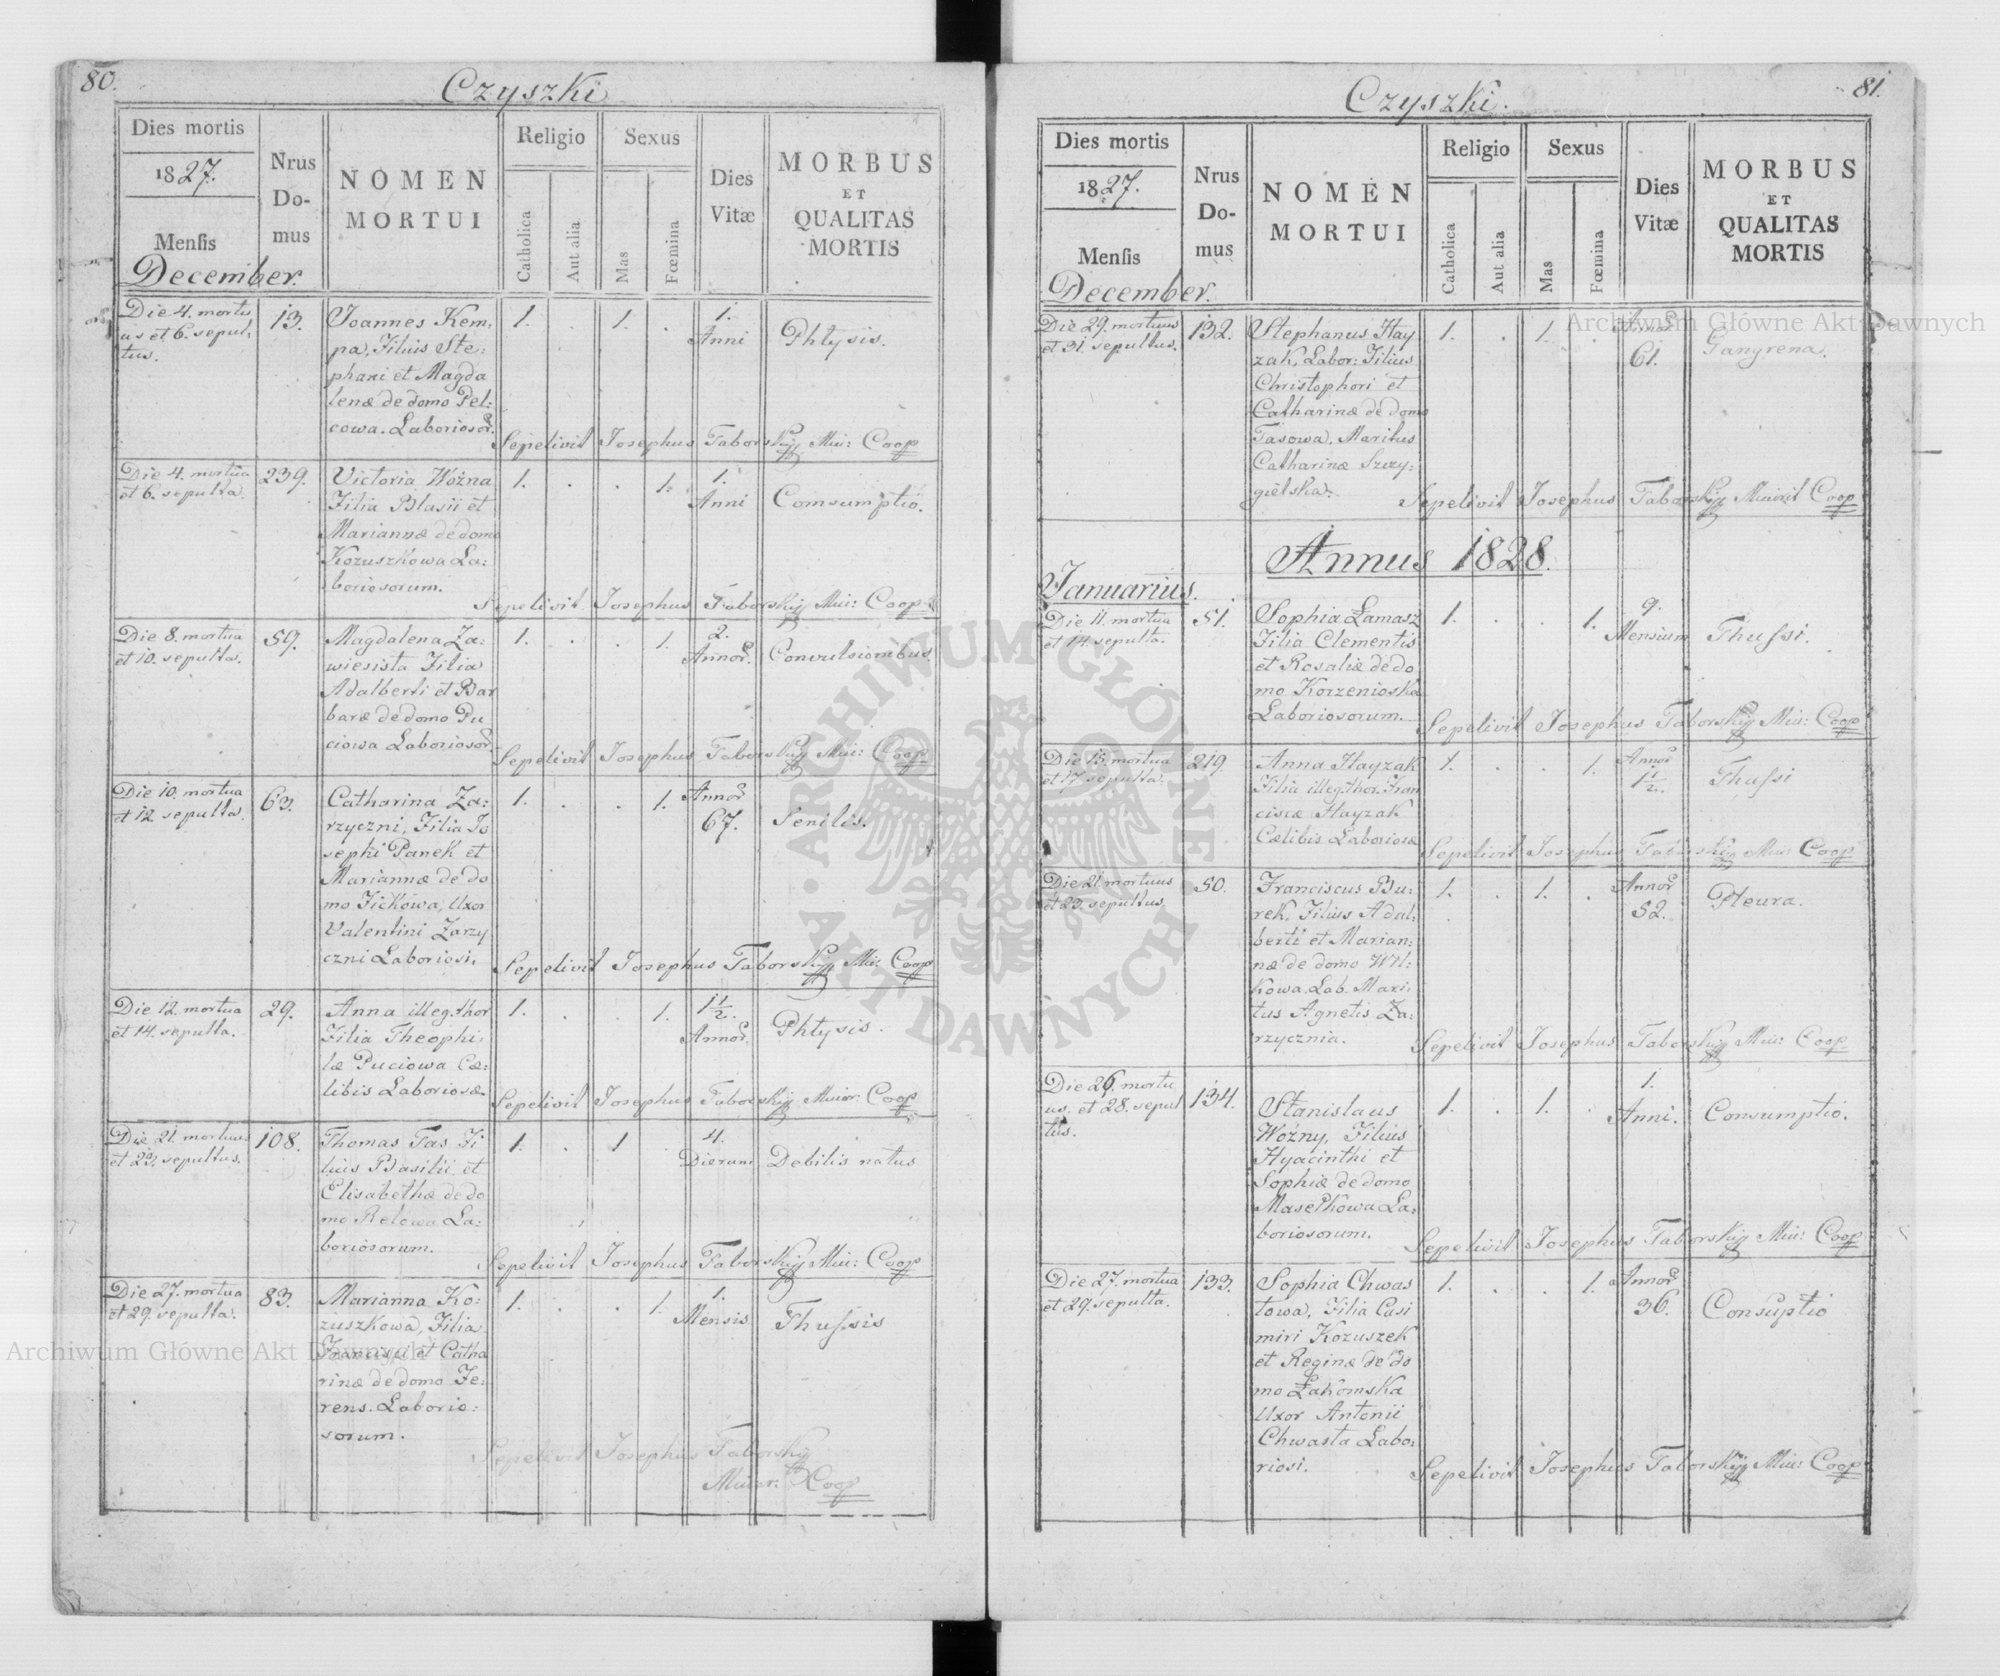 80.
Czyszki
Dies mortis
1827.
Mensis
December.
Nrus
Do-
mus
NOMEN
MORTUI
Religio
Catholica
Aut alia
Sexus
Mas
Fœmina
Dies
Vitæ
MORBUS
ET
QUALITAS
MORTIS
Die 4. mortu
us et 6. sepul:
tus.
13.
Joannes Kem,
pa, Filius Ste:
phani et Magda
lenæ de domo Pel:
cowa. Laboriosor.
1. . 1. .
1.
Anni
Phtysis.
Sepelivit Josephus Taborskij Min: Coop
Die 4. mortua
et 6. sepulta.
239.
Victoria Woźna
Filia Blasii et
Mariannæ de domo
Kozuszkowa La:
boriosorum.
1. . . 1.
1.
Anni
Comsumptio.
Sepelivit Josephus Taborskij Min: Coop
Die 8. mortua
et 10. sepulta.
59.
Magdalena Za:
wiesista Filia
Adalberti et Bar
baræ de domo Pu
ciowa Laboriosor.
1. . . 1.
2.
Annor.
Convulsionibus.
Sepelivit Josephus Taborskij Min: Coop
Die 10. mortua
et 12. sepulta.
63.
Catharina Za:
rzyczni, Filia Jo
sephi Panek et
Mariannæ de do
mo Fickowa, Uxor
Valentini Zarzy
czni Laboriosi.
1. . . 1.
Annor
67.
Senilis.
Sepelivit Josephus Taborskij Min: Coop
Die 12. mortua
et 14. sepulta.
29.
Anna illeg. thor
Filia Theophi,
læ Puciowa Cæ:
libis Laboriosæ.
1. . . 1.
1 1/2.
Annor.
Phtysis.
Sepelivit Josephus Taborskij Minor. Coop
Die 21. mortuus
et 23. sepultus.
108.
Thomas Tas Fi
lius Basilii et
Elisabethæ de do
mo Relowa La:
boriosorum.
1. . 1 .
4.
Dierum
Debilis natus
Sepelivit Josephus Taborskij Min: Coop
Die 27. mortua
et 29. sepulta.
83.
Marianna Ko:
zuszkowa, Filia
Francisci et Catha
rinæ de domo Fe:
rens. Laborio:
sorum.
1. . . 1.
1.
Mensis
Thussis
Sepelivit Josephus Taborskij
Minor. Coop
81.
Czyszki.
Dies mortis
1827.
Mensis
December.
Nrus
Do-
mus
NOMEN
MORTUI
Religio
Catholica
Aut alia
Sexus
Mas
Fœmina
Dies
Vitæ
MORBUS
ET
QUALITAS
MORTIS
Die 29. mortuus
et 31. sepultus.
132.
Stephanus Hay
zak, Labor: Filius
Christophori et
Catharinæ de domo
Tasowa. Maritus
Catharinæ Szczy:
gielska.
1. . 1. .
Annor
61.
Gangrena.
Sepelivit Josephus Taborskij Minorit Coop
Annus 1828.
Januarius.
Die 11. mortua
et 14. sepulta.
51.
Sophia Łamasz
Filia Clementis
et Rosaliæ de do
mo Korzenioska
Laboriosorum.
1. . . 1.
9.
Mensium
Thussi.
Sepelivit Josephus Taborskij Min: Coop
Die 15. mortua
et 17. sepulta.
219.
Anna Hayzak
Filia illeg. thor. Fran
ciscæ Hayzak
Cælibis Laboriosæ
1. . . 1.
Annor
1 1/2.
Thussi
Sepelivit Josephus Taborskij Min: Coop
Die 21. mortuus
et 23. sepultus.
50.
Franciscus Bu:
rek, Filius Adal:
berti et Marian:
næ de domo Wil:
kowa. Lab. Mari:
tus Agnetis Za:
rzycznia.
1. . 1. .
Annor
52.
Pleura.
Sepelivit Josephus Taborskij Min: Coop
Die 26. mortu
us. et 28. sepul
tus.
134.
Stanislaus
Woźny, Filius
Hyacinthi et
Sophiæ de domo
Masełkowa La:
boriosorum.
1. . 1. .
1.
Anni.
Consumptio.
Sepelivit Josephus Taborskij Min: Coop
Die 27. mortua
et 29. sepulta.
133.
Sophia Chwas
towa, Filia Casi
miri Kozuszek
et Reginæ de do
mo Łakomska
Uxor Antonii
Chwasta Labo:
riosi.
1. . . 1.
Annor
36.
Consuptio
Sepelivit Josephus Taborskij Min: Coop
Archiwum Główne Akt Dawnych
Archiwum Główne Akt Dawnych
ARCHIWUM GŁÓWNE · AKT DAWNYCH ·